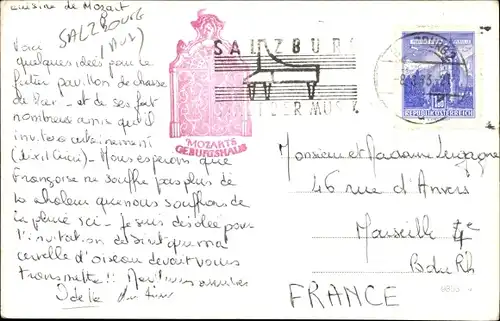 cuisine de Mozart
SALZBOURG
Voici
quelques idées pour le
futur pavillon de chasse
de - et de ses fort
nombreux amis qu'il
invitera certainement
(dixit Cuicui) - Nous espérons que
Françoise ne souffre pas plus de
la chaleur que nous souffrons de
la pluie ici - Je suis désolée pour
l'invitation de dont ma
cervelle d'oiseau devait vous
transmettre!! Meilleures amitiés
Odette
MOZARTS
GEBURTSHAUS
SALZBURG
DER MUSIK
REPUBLIK ÖSTERREICH
Monsieur et Madame
46 rue d'Anvers
Marseille 4e
B du Rh
FRANCE